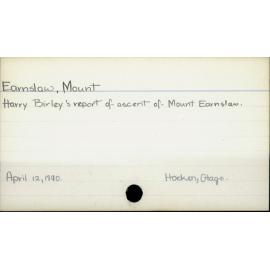 Earnslaw, Mount
Harry Birley's report of ascent of Mount Earnslaw.
April 12, 1890.
Hocken, Otago.